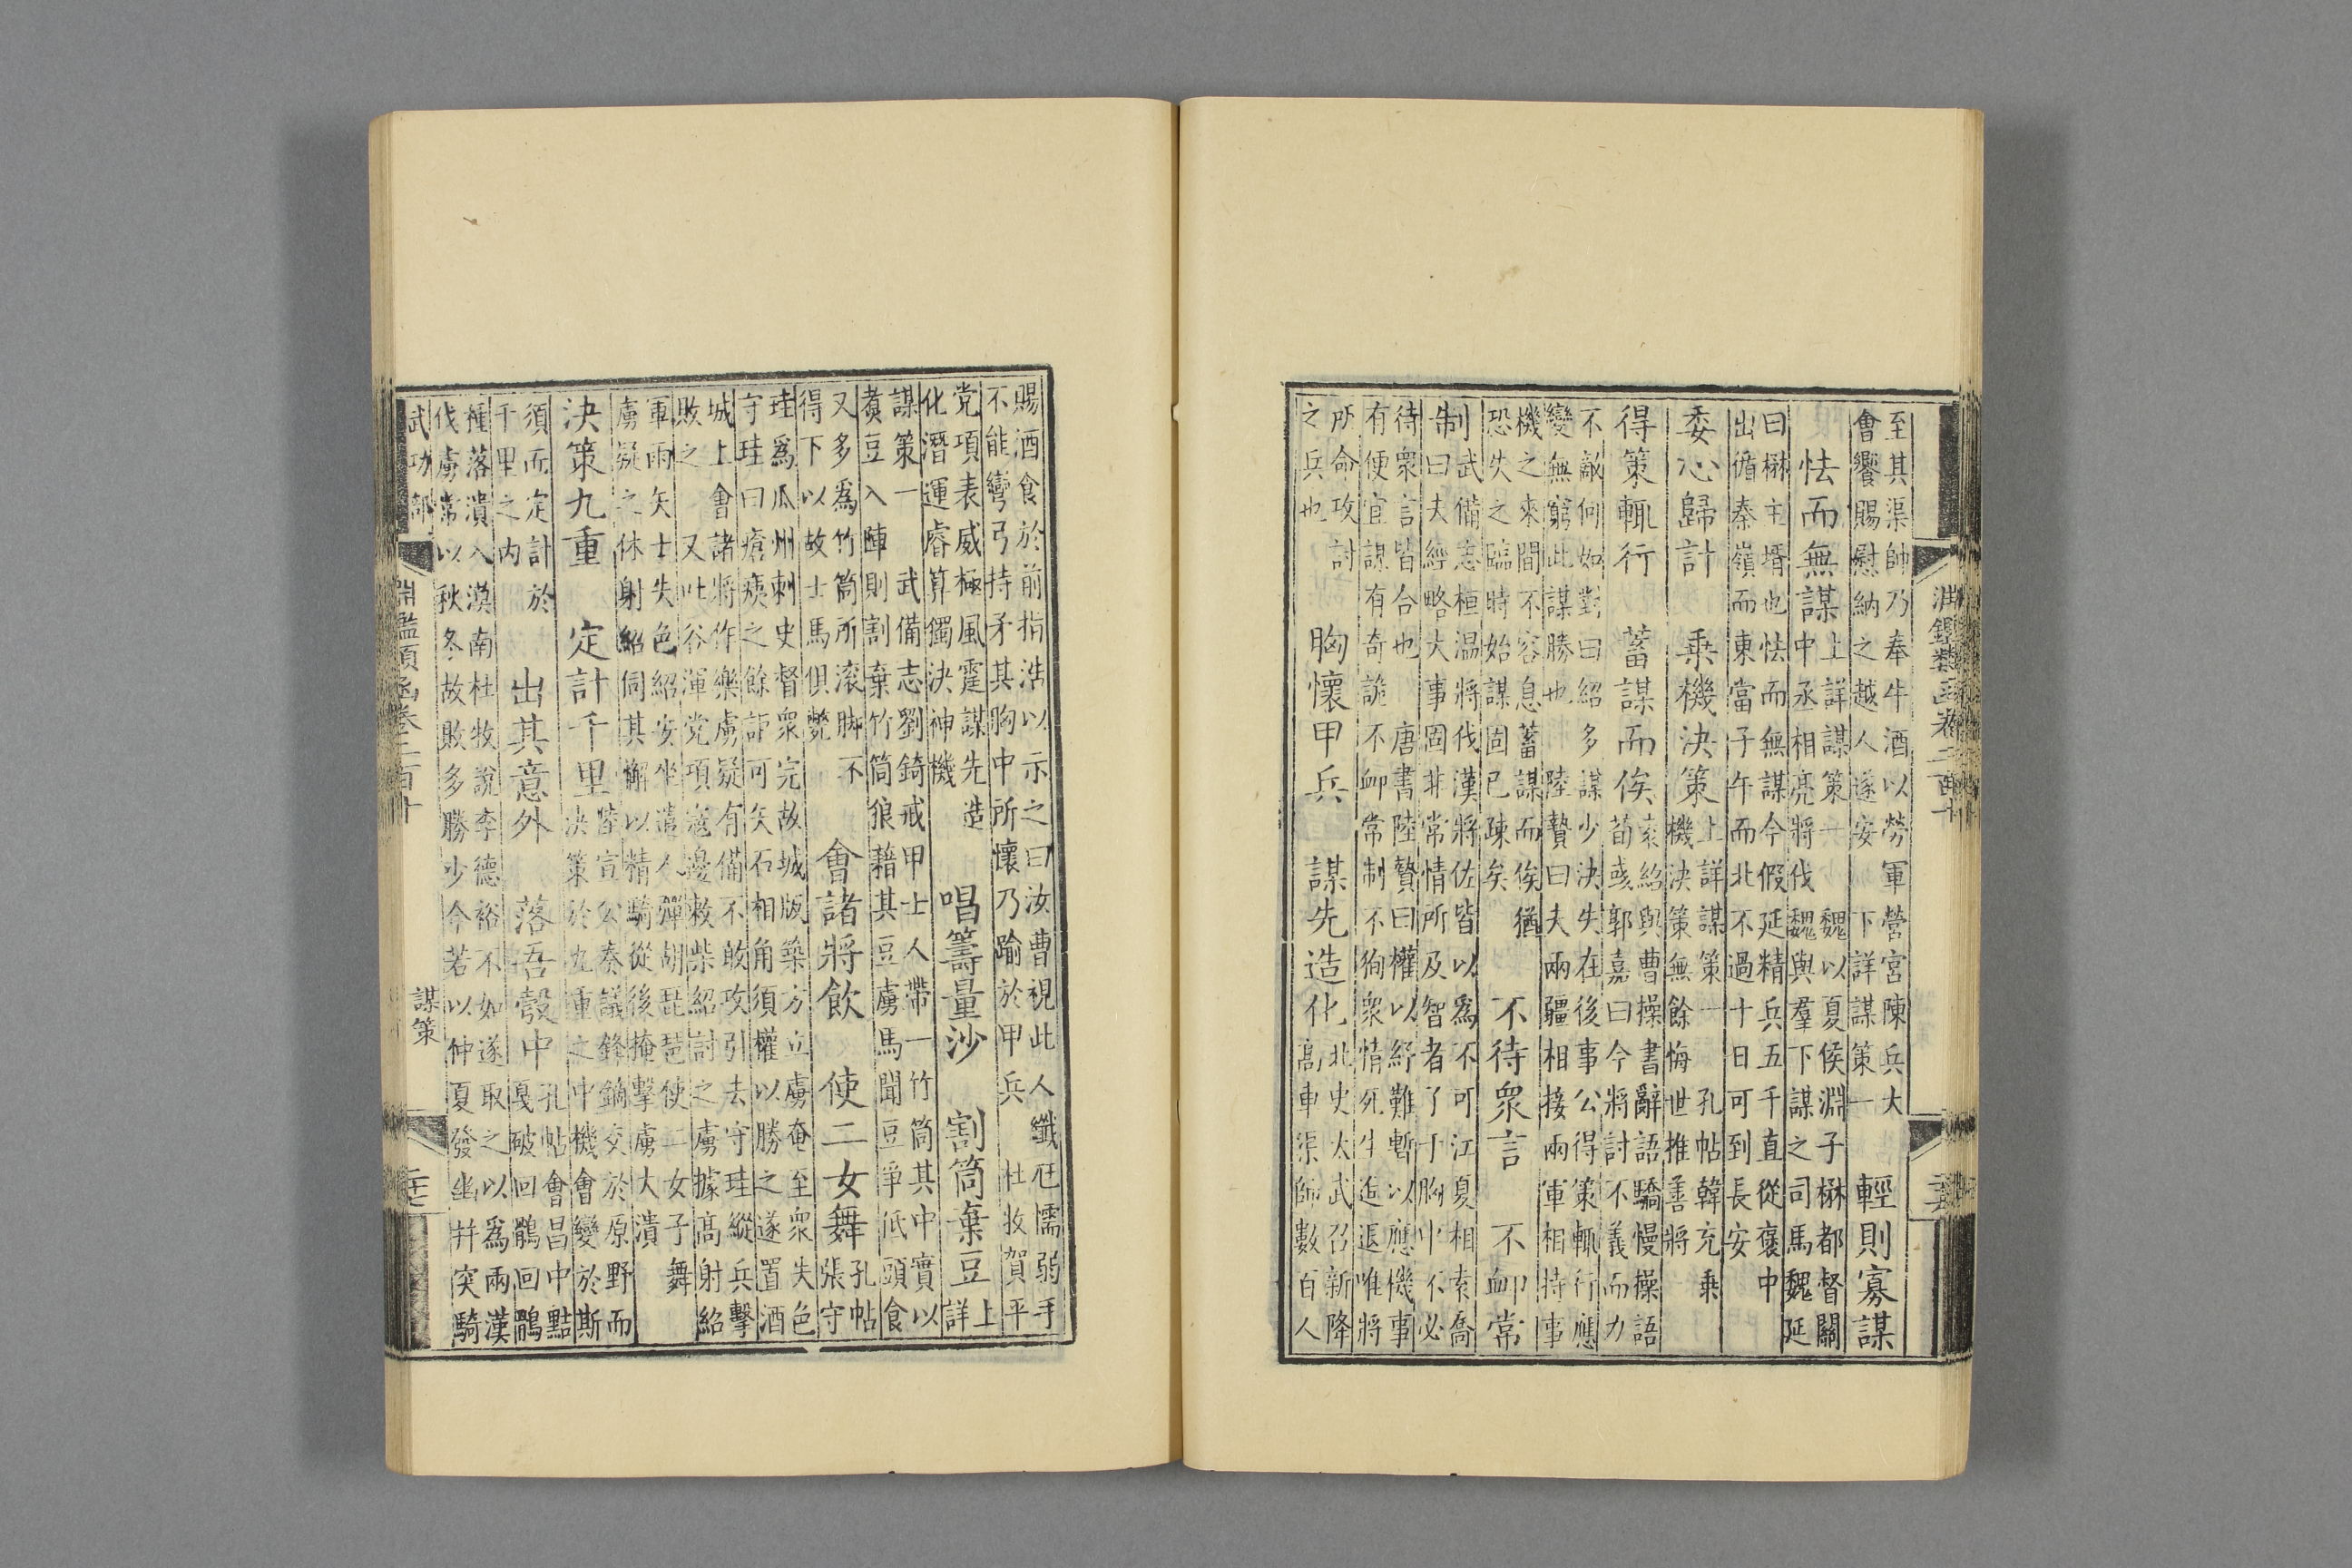 至其渠帥乃奉牛酒以勞軍營宮陳兵大
會饗賜慰納之越人遂安 下詳謀策一
輕則寡謀
怯而無謀
上詳謀策一
中丞相亮將伐
魏以夏侯淵子楙都督關
魏與羣下謀之司馬魏延
曰楙主壻也怯而無謀今假延精兵五千直從褒中
出循秦嶺而東當子午而北不過十日可到長安
委心歸計
乗機決策
上詳謀策一 孔帖韓充乗
機決策無餘悔世推善將
得策輒行
蓄謀而俟
袁紹與曹操書辭語驕慢操語
荀彧郭嘉曰今將討不義而力
不敵何如對曰紹多謀少決失在後事公得策輒行應
變無窮此謀勝也 陸贄曰夫兩疆相接兩軍相持事
機之來間不容息蓄謀而俟猶
恐失之臨時始謀固已疎矣
不待衆言
不卹常
制
武備志桓温將伐漢將佐皆以爲不可江夏相袁喬
曰夫經略大事固非常情所及智者了于胸中不必
待衆言皆合也 唐書陸贄曰權以紓難暫以應機事
有便宜謀有奇詭不卹常制不徇衆情死生進退唯將
所命攻討
之兵也
胸懷甲兵
謀先造化
北史太武召新降
高車渠帥數百人
淵鑑類函卷二百十
賜酒食於前指浩以示之曰汝曹視此人纖尪懦弱手
不能彎弓持矛其胸中所懷乃踰於甲兵 杜牧賀平
党項表威極風霆謀先造
化潛運睿算獨決神機
唱籌量沙
割筒棄豆
上
詳
謀策一 武備志劉錡戒甲士人帶一竹筒其中實以
煑豆入陣則割棄竹筒狼藉其豆虜馬聞豆爭低頭食
又多爲竹筒所滚脚不
得下以故士馬俱斃
會諸將飲
使二女舞
孔帖
張守
珪爲瓜州刺史督衆完故城版築方立虜奄至衆失色
守珪曰瘡痍之餘詎可矢石相角須權以勝之遂置酒
城上會諸將作樂虜疑有備不敢攻引去守珪縱兵擊
敗之 又吐谷渾党項寇邊敕柴紹討之虜據高射紹
軍雨矢士失色紹安坐遣人彈胡琵琶使二女子舞
虜疑之休射紹伺其懈以精騎從後掩擊虜大潰
決策九重
定計千里
陸宣公奏議鋒鏑交於原野而
決策於九重之中機會變於斯
須而定計於
千里之內
出其意外
落吾彀中
孔帖會昌中黠
戛破回鶻回鶻
種落潰入漠南杜牧說李德裕不如遂取之以爲兩漢
伐虜常以秋冬故敗多勝少今若以仲夏發幽并突騎
武功部
淵鑑類函卷二百十
謀策